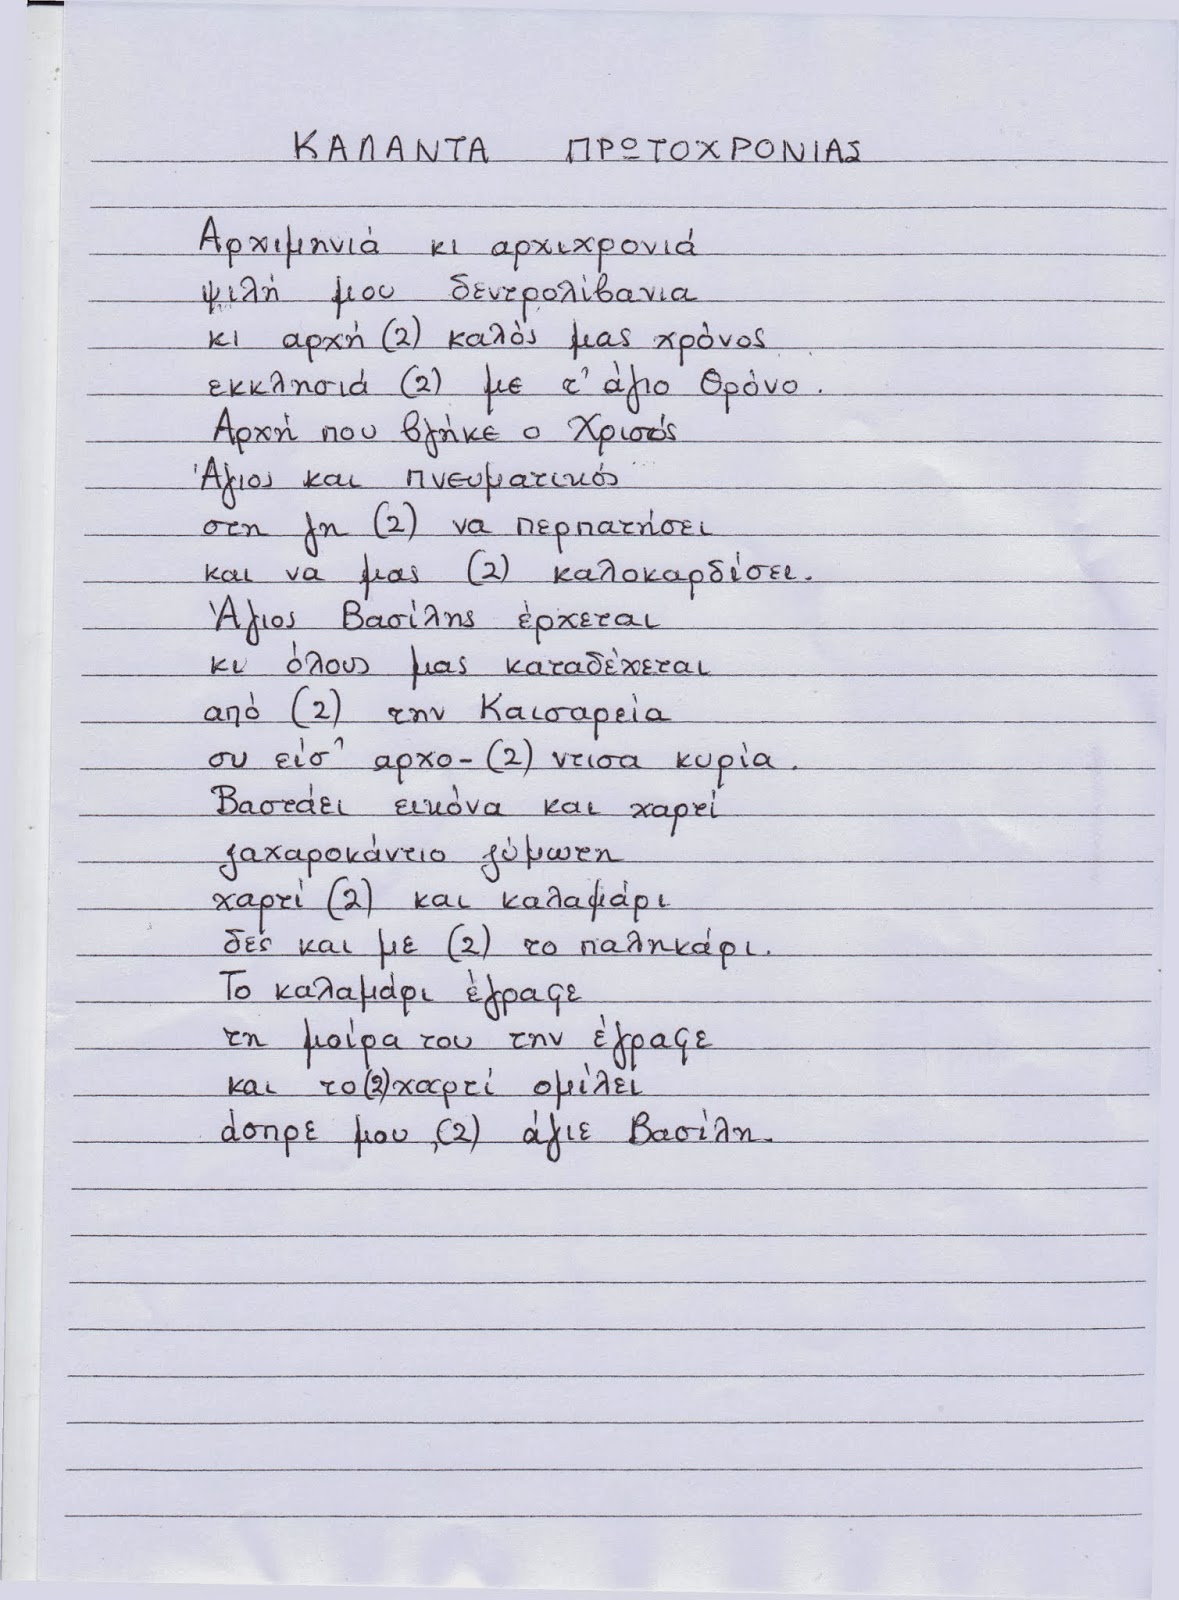 ΚΑΛΑΝΤΑ ΠΡΩΤΟΧΡΟΝΙΑΣ
Αρχιμηνιά κι αρχιχρονιά
ψιλή μου δεντρολίβανια
κι αρχή (2) καλός μας χρόνος
εκκλησιά (2) με τ' άγιο Θρόνο.
Αρχή που βγήκε ο Χριστός
Άγιος και πνευματικός
στη γη (2) να περπατήσει
και να μας (2) καλοκαρδίσει.
Άγιος Βασίλης έρχεται
κι όλους μας καταδέχεται
από (2) την Καισαρεία
συ εισ' αρχο-(2) ντισα κυρία.
Βαστάει εικόνα και χαρτί
ζαχαροκάντιο ζύμωτη
χαρτί (2) και καλαμάρι
δες και με (2) το παληκάρι.
Το καλαμάρι έγραφε
τη μοίρα του την έγραφε
και το (2) χαρτί ομίλει
άσπρε μου (2) άγιε Βασίλη.